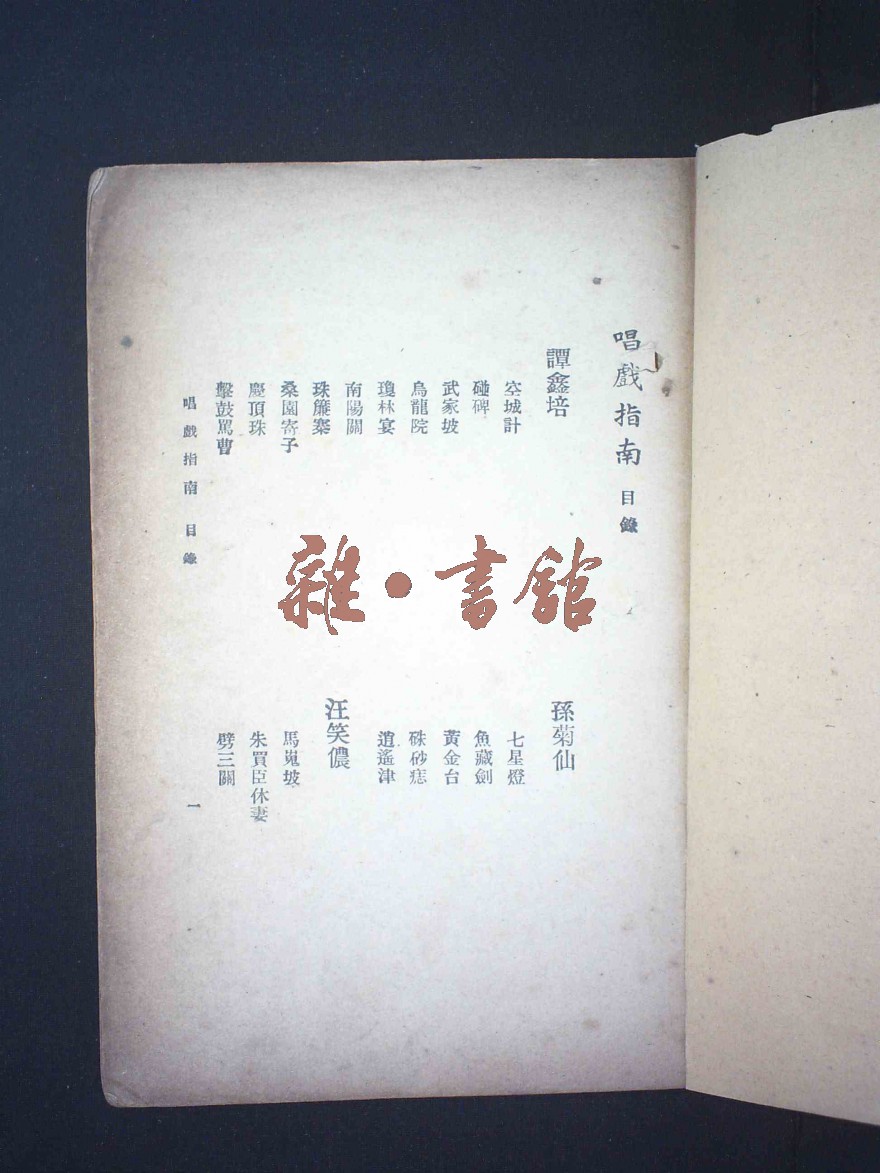 唱戲指南 目錄
譚鑫培
空城計
碰碑
武家坡
烏龍院
瓊林宴
南陽關
珠簾寨
桑園寄子
慶頂珠
擊鼓罵曹
孫菊仙
七星燈
魚藏劍
黃金台
硃砂痣
逍遙津
汪笑儂
馬嵬坡
朱買臣休妻
劈三關
唱戲指南 目錄
一
雜・書館